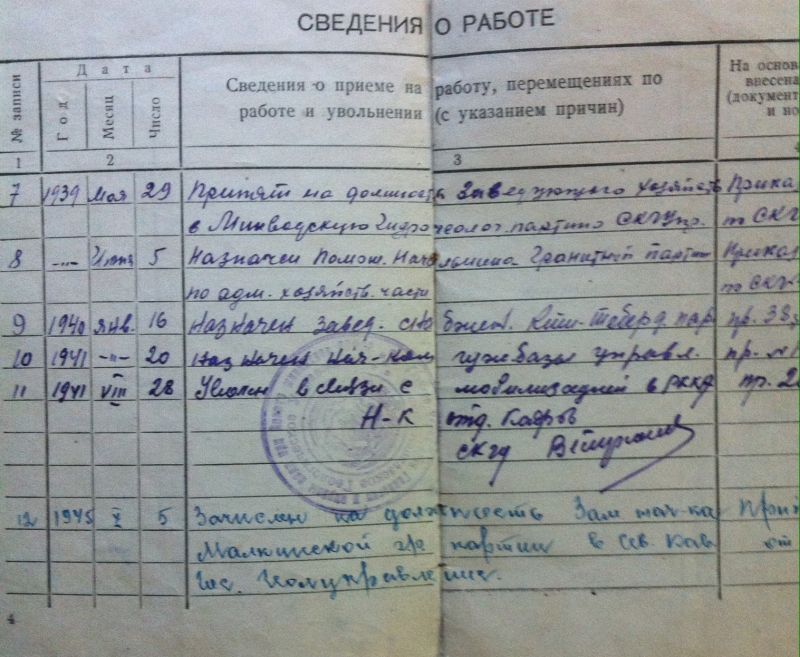 СВЕДЕНИЯ О РАБОТЕ
№ записи
Дата
Год
Месяц
Число
Сведения о приеме на работу, перемещениях по
работе и увольнении (с указанием причин)
На основ
внесена
(документ
и но
1 2 3 4
7 1939 Мая 29 Принят на должность Заведующего хозяйств Прика
в Минводскую Гидрогеолог. партию СКГУпр. по СКГ
8 -"- Июня 5 Назначен Помощ. Начальника Гранитной партии Приказ
по адм. хозяйств. части по СКГ
9 1940 янв. 16 Назначен Завед. снабжен. Кти-Теберд. пар пр. 38
10 1941 -"- 20 Назначен Нач-ком гужебазы управл. пр. №1
11 1941 VIII 28 Уволен в связи с мобилизацией в РККА пр. 2
Н-к отд. Кадров
СКГУ
12 1945 X 5 Зачислен на должность Зам нач-ка При
Малкинской г/р партии в Сев. Кав от
Гос. Геолуправление.
4